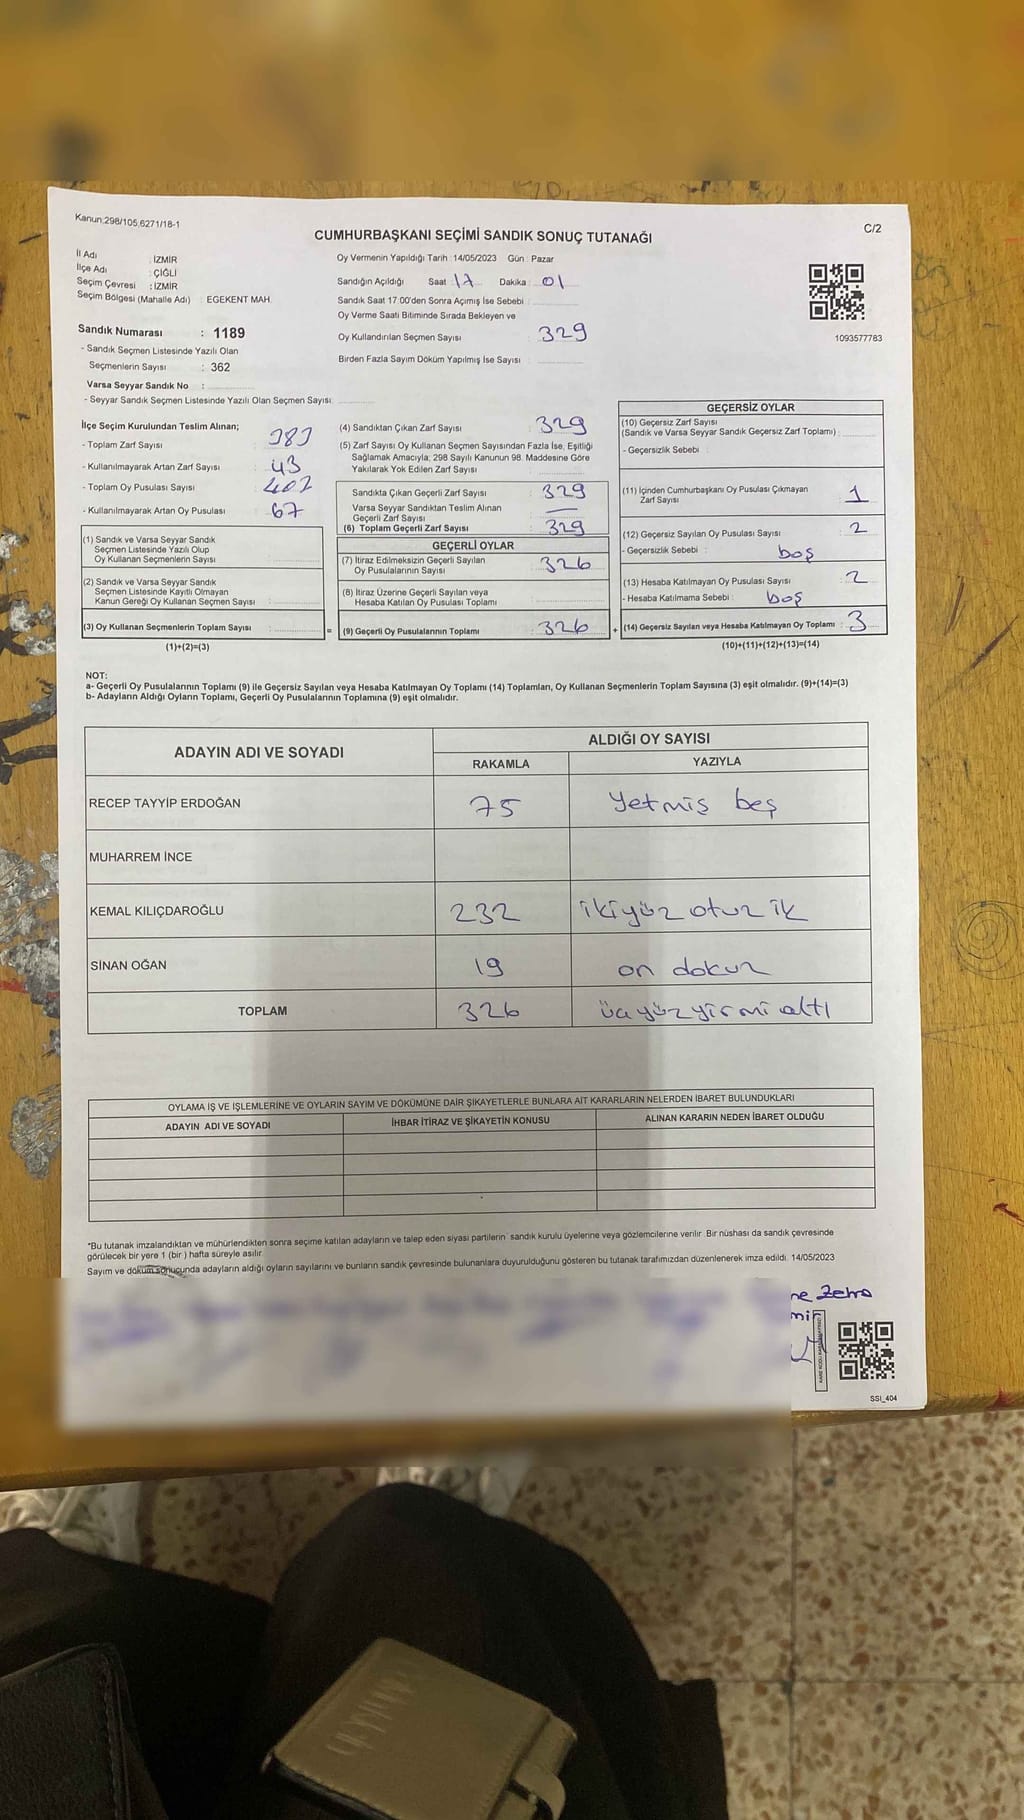 Kanun:298/105,6271/18-1
C/2
CUMHURBAŞKANI SEÇİMİ SANDIK SONUÇ TUTANAĞI
İl Adı : İZMİR
İlçe Adı : ÇİĞLİ
Seçim Çevresi : İZMİR
Seçim Bölgesi (Mahalle Adı) : EGEKENT MAH.
Sandık Numarası : 1189
- Sandık Seçmen Listesinde Yazılı Olan
Seçmenlerin Sayısı : 362
Varsa Seyyar Sandık No :
- Seyyar Sandık Seçmen Listesinde Yazılı Olan Seçmen Sayısı:
Oy Vermenin Yapıldığı Tarih : 14/05/2023 Gün : Pazar
Sandığın Açıldığı Saat : 17 Dakika : 01
Sandık Saat 17:00'den Sonra Açımış İse Sebebi :
Oy Verme Saati Bitiminde Sırada Bekleyen ve
Oy Kullandırılan Seçmen Sayısı : 329
Birden Fazla Sayım Döküm Yapılmış İse Sayısı :
1093577783
İlçe Seçim Kurulundan Teslim Alınan;
- Toplam Zarf Sayısı :
- Kullanılmayarak Artan Zarf Sayısı : 43
- Toplam Oy Pusulası Sayısı : 402
- Kullanılmayarak Artan Oy Pusulası : 67
(1) Sandık ve Varsa Seyyar Sandık
Seçmen Listesinde Yazılı Olup
Oy Kullanan Seçmenlerin Sayısı :
(2) Sandık ve Varsa Seyyar Sandık
Seçmen Listesinde Kayıtlı Olmayan
Kanun Gereği Oy Kullanan Seçmen Sayısı :
(3) Oy Kullanan Seçmenlerin Toplam Sayısı :
(1)+(2)=(3)
(4) Sandıktan Çıkan Zarf Sayısı : 329
(5) Zarf Sayısı Oy Kullanan Seçmen Sayısından Fazla İse, Eşitliği
Sağlamak Amacıyla; 298 Sayılı Kanunun 98. Maddesine Göre
Yakılarak Yok Edilen Zarf Sayısı :
Sandıkta Çıkan Geçerli Zarf Sayısı : 329
Varsa Seyyar Sandıktan Teslim Alınan
Geçerli Zarf Sayısı : —
(6) Toplam Geçerli Zarf Sayısı : 329
GEÇERLİ OYLAR
(7) İtiraz Edilmeksizin Geçerli Sayılan
Oy Pusulalarının Sayısı : 326
(8) İtiraz Üzerine Geçerli Sayılan veya
Hesaba Katılan Oy Pusulası Toplamı :
= (9) Geçerli Oy Pusulalarının Toplamı : 326 +
GEÇERSİZ OYLAR
(10) Geçersiz Zarf Sayısı
(Sandık ve Varsa Seyyar Sandık Geçersiz Zarf Toplamı) :
- Geçersizlik Sebebi :
(11) İçinden Cumhurbaşkanı Oy Pusulası Çıkmayan
Zarf Sayısı : 1
(12) Geçersiz Sayılan Oy Pusulası Sayısı : 2
- Geçersizlik Sebebi : boş
(13) Hesaba Katılmayan Oy Pusulası Sayısı : 2
- Hesaba Katılmama Sebebi : boş
(14) Geçersiz Sayılan veya Hesaba Katılmayan Oy Toplamı : 3
(10)+(11)+(12)+(13)=(14)
NOT:
a- Geçerli Oy Pusulalarının Toplamı (9) ile Geçersiz Sayılan veya Hesaba Katılmayan Oy Toplamı (14) Toplamları, Oy Kullanan Seçmenlerin Toplam Sayısına (3) eşit olmalıdır. (9)+(14)=(3)
b- Adayların Aldığı Oyların Toplamı, Geçerli Oy Pusulalarının Toplamına (9) eşit olmalıdır.
ADAYIN ADI VE SOYADI ALDIĞI OY SAYISI
RAKAMLA YAZIYLA
RECEP TAYYİP ERDOĞAN 75 yetmiş beş
MUHARREM İNCE
KEMAL KILIÇDAROĞLU 232 ikiyüz otuz ik
SİNAN OĞAN 19 on dokuz
TOPLAM 326 üçyüzyirmi altı
OYLAMA İŞ VE İŞLEMLERİNE VE OYLARIN SAYIM VE DÖKÜMÜNE DAİR ŞİKAYETLERLE BUNLARA AİT KARARLARIN NELERDEN İBARET BULUNDUKLARI
ADAYIN ADI VE SOYADI İHBAR İTİRAZ VE ŞİKAYETİN KONUSU ALINAN KARARIN NEDEN İBARET OLDUĞU
*Bu tutanak imzalandıktan ve mühürlendikten sonra seçime katılan adayların ve talep eden siyasi partilerin sandık kurulu üyelerine veya gözlemcilerine verilir. Bir nüshası da sandık çevresinde
görülecek bir yere 1 (bir) hafta süreyle asılır.
Sayım ve döküm sonucunda adayların aldığı oyların sayılarını ve bunların sandık çevresinde bulunanlara duyurulduğunu gösteren bu tutanak tarafımızdan düzenlenerek imza edildi. 14/05/2023
ne Zehra
min
SSİ_404